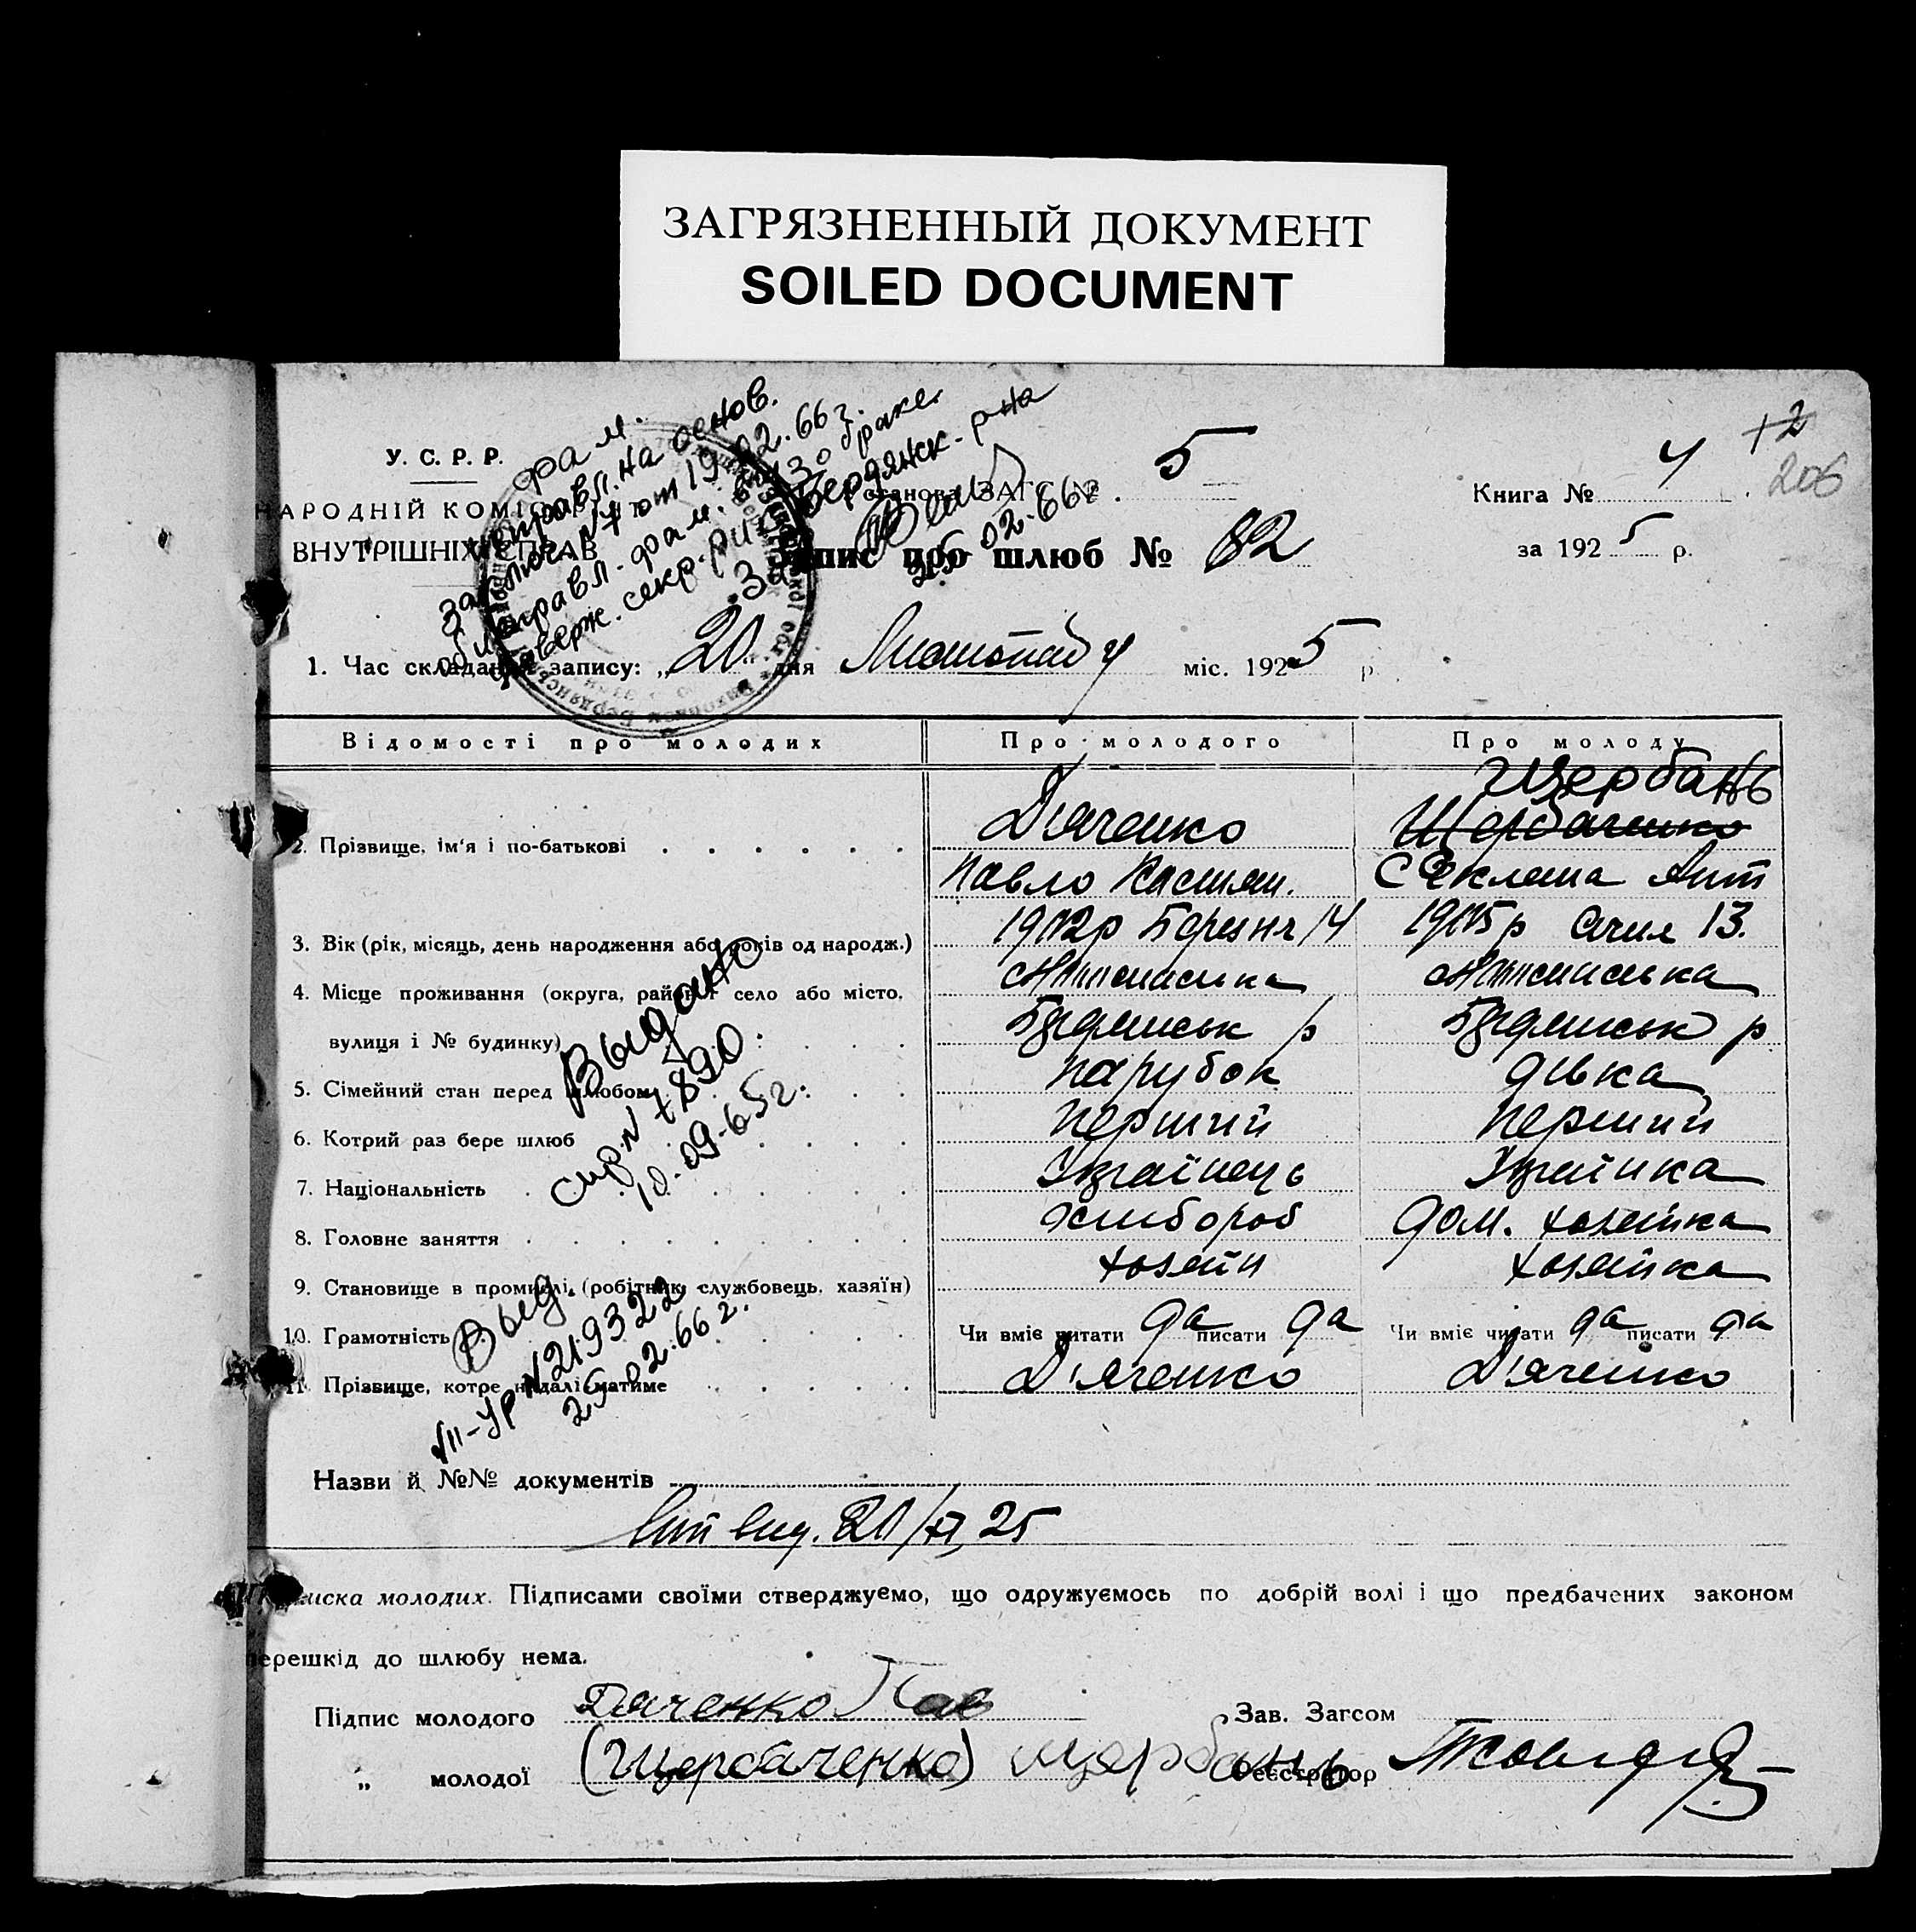 ЗАГРЯЗНЕННЫЙ ДОКУМЕНТ
SOILED DOCUMENT
фам.
исправл. на основ.
заключ. № от 19.02.66 г.
об исправл. фам. в з/о браке.
утверж. секр. Бердянск. р-на
25.02.66 г.
У. С. Р. Р.
НАРОДНІЙ КОМІСАРІЯТ
ВНУТРІШНІХ СПРАВ
Установа ЗАГС № 5
Книга № 4
+2
206
за 1925 р.
Запис про шлюб № 82
1. Час складання запису: „20" дня Листопаду міс. 1925 р.
Відомості про молодих
Про молодого
Про молоду
2. Прізвище, ім'я і по-батькові
Д'яченко
Павло Касіян.
Щербань
Щербаченко
Феклеша Ант
3. Вік (рік, місяць, день народження або років од народж.)
1902р Березня 14
1905р Січня 13.
4. Місце проживання (округа, район, село або місто,
вулиця і № будинку)
Бердянськ р
Бердянськ р
5. Сімейний стан перед шлюбом
парубок
дівка
6. Котрий раз бере шлюб
Перший
Перший
7. Національність
Українець
Українка
8. Головне заняття
Хлібороб
дом. хозяйка
9. Становище в промислі (робітник, службовець, хазяїн)
хозяїн
хозяйка
10. Грамотність
Чи вміє читати да писати да
Чи вміє читати да писати да
11. Прізвище, котре надалі матиме
Д'яченко
Д'яченко
Выдано
спр № 7890
10.09.65 г.
Выд.
УР № 219322
25.02.66 г.
Назви й №№ документів
20/XI 25
Підписка молодих. Підписами своїми стверджуємо, що одружуємось по добрій волі і що предбачених законом
перешкід до шлюбу нема.
Підпис молодого Дяченко Пав
Зав. Загсом
„ молодої (Щербаченко) Щербань
Реєстратор